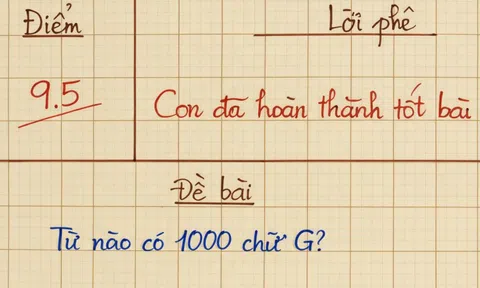 Điểm
Lời phê
9.5
Con đã hoàn thành tốt bài
Đề bài
Từ nào có 1000 chữ G?